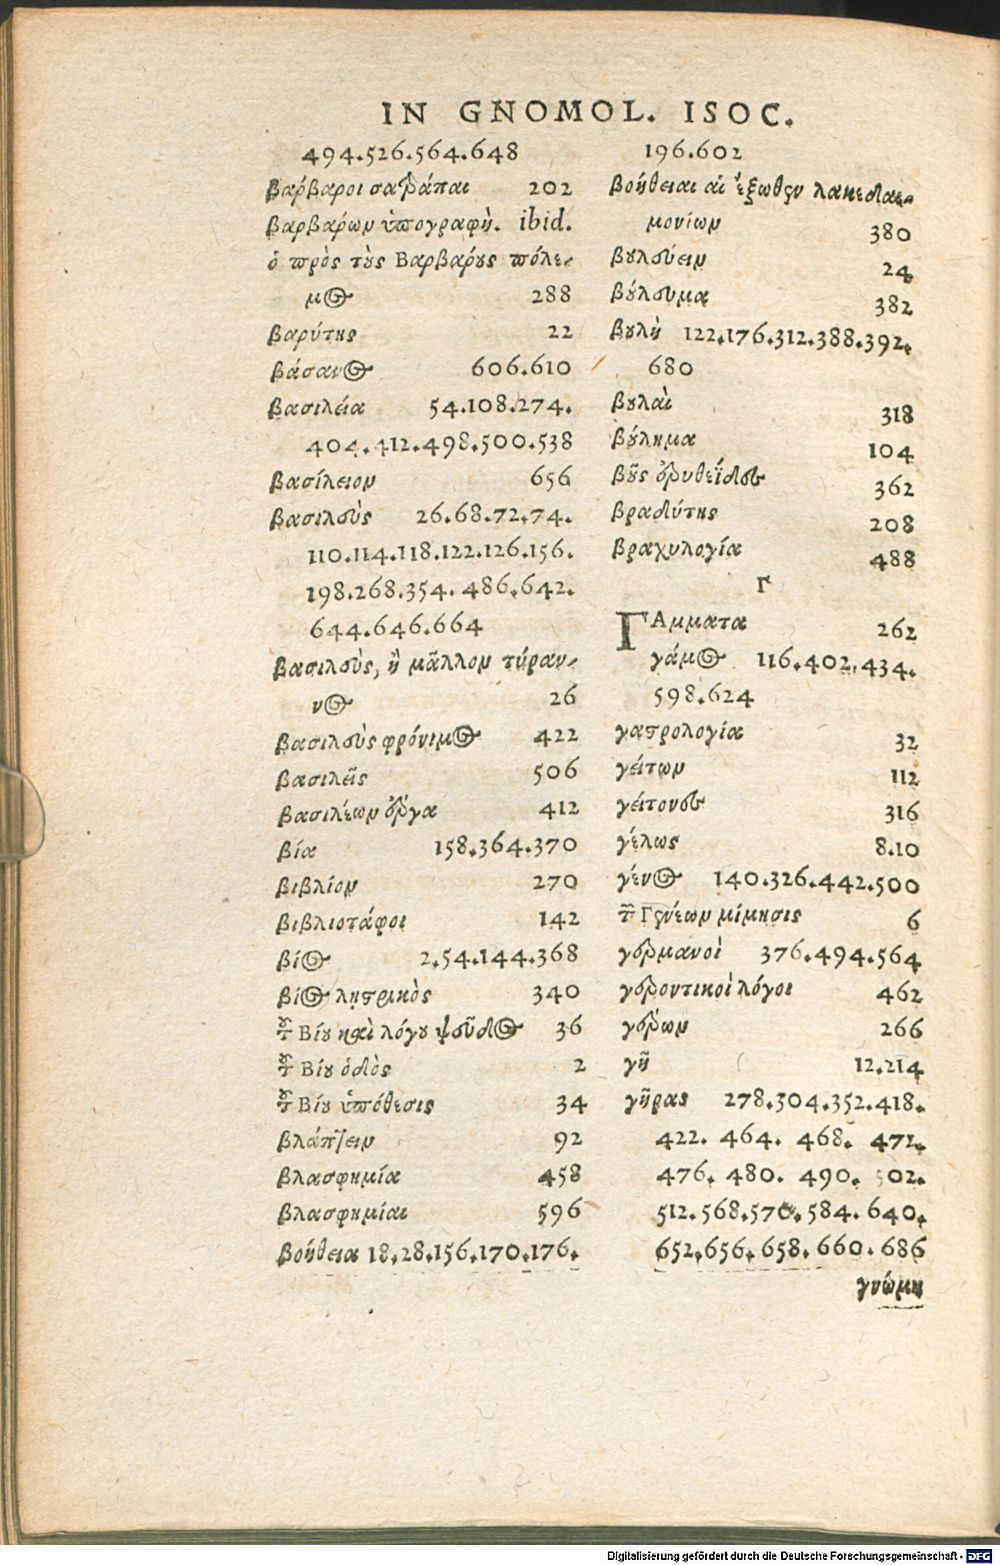 IN GNOMOL. ISOC.
494.526.564.648
βαρβαροι σατράπαι 202
βαρβαρων ὑπογραφὴ. ibid.
ὁ πρὸς τοὺς Βαρβάρους πόλε-
μος 288
βαρύτης 22
βάσανος 606.610
βασιλεία 54.108.274.
404.412.498.500.538
βασίλειον 656
βασιλεὺς 26.68.72.74.
110.114.118.122.126.156.
198.268.354.486.642.
644.646.664
βασιλεὺς, ἢ μᾶλλον τύραν-
νος 26
βασιλεὺς φρόνιμος 422
βασιλεῖς 506
βασιλέων ὄργα 412
βία 158.364.370
βιβλίον 270
βιβλιοτάφοι 142
βίος 2.54.144.368
βίος λῃστρικὸς 340
τοῦ Βίου καὶ λόγου ψεῦδος 36
τοῦ Βίου ὁδὸς 2
τοῦ Βίου ὑπόθεσις 34
βλάπτειν 92
βλασφημία 458
βλασφημίαι 596
βοήθεια 18.28.156.170.176.
196.602
βοήθειαι αἱ ἔξωθεν λακεδαι-
μονίων 380
βουλεύειν 24
βούλευμα 382
βουλὴ 122.176.312.388.392.
680
βουλαὶ 318
βούλημα 104
βοῦς ὀρυθεΐδες 362
βραδύτης 208
βραχυλογία 488
Γ
ΓΑμματα 262
γάμος 116.402.434.
598.624
γαστρολογία 32
γείτων 112
γείτονες 316
γέλως 8.10
γένος 140.326.442.500
τῶν Γονέων μίμησις 6
γερμανοὶ 376.494.564
γεροντικοὶ λόγοι 462
γέρων 266
γῆ 12.214
γῆρας 278.304.352.418.
422. 464. 468. 472.
476. 480. 490. 502.
512.568.570.584.640.
652.656.658.660.686
γνώμη
Digitalisierung gefördert durch die Deutsche Forschungsgemeinschaft - DFG